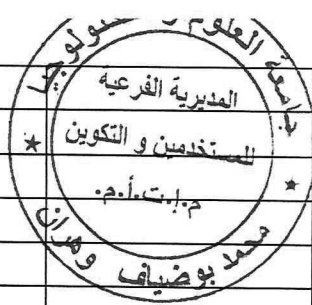 جامعة العلوم و التكنولوجيا
المديرية الفرعية
للمستخدمين و التكوين
م.إ.ت.أ.م.
محمد بوضياف وهران